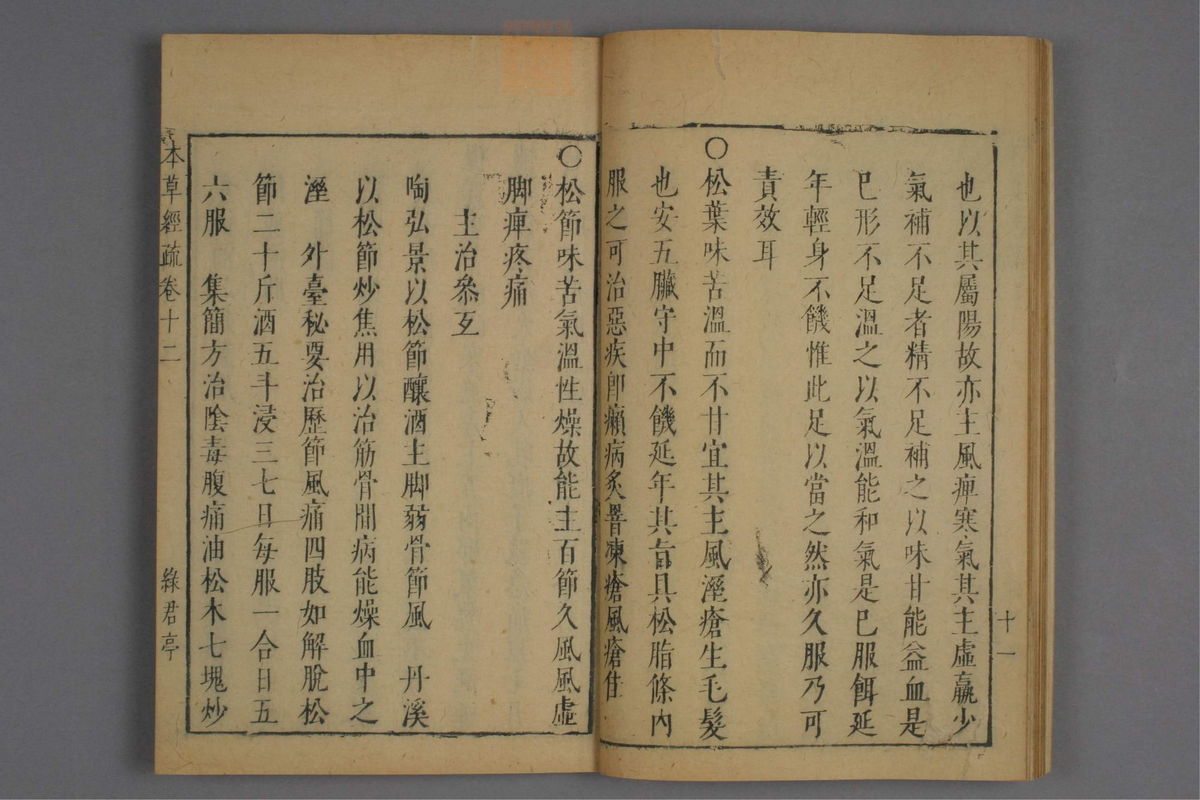 也以其屬陽故亦主風痺寒氣其主虛羸少
氣補不足者精不足補之以味甘能益血是
巳形不足溫之以氣溫能和氣是巳服餌延
年輕身不饑惟此足以當之然亦久服乃可
責效耳
〇松葉味苦溫而不甘宜其主風溼瘡生毛髮
也安五臟守中不饑延年其旨具松脂條內
服之可治惡疾卽癩病炙罯凍瘡風瘡佳
十一
〇松節味苦氣溫性燥故能主百節久風風虛
脚痺疼痛
主治叅互
陶弘景以松節釀酒主脚弱骨節風 丹溪
以松節炒焦用以治筋骨間病能燥血中之
溼 外臺秘要治歷節風痛四肢如解脫松
節二十斤酒五斗浸三七日每服一合日五
六服 集簡方治陰毒腹痛油松木七塊炒
本草經疏 卷十二 綠君亭